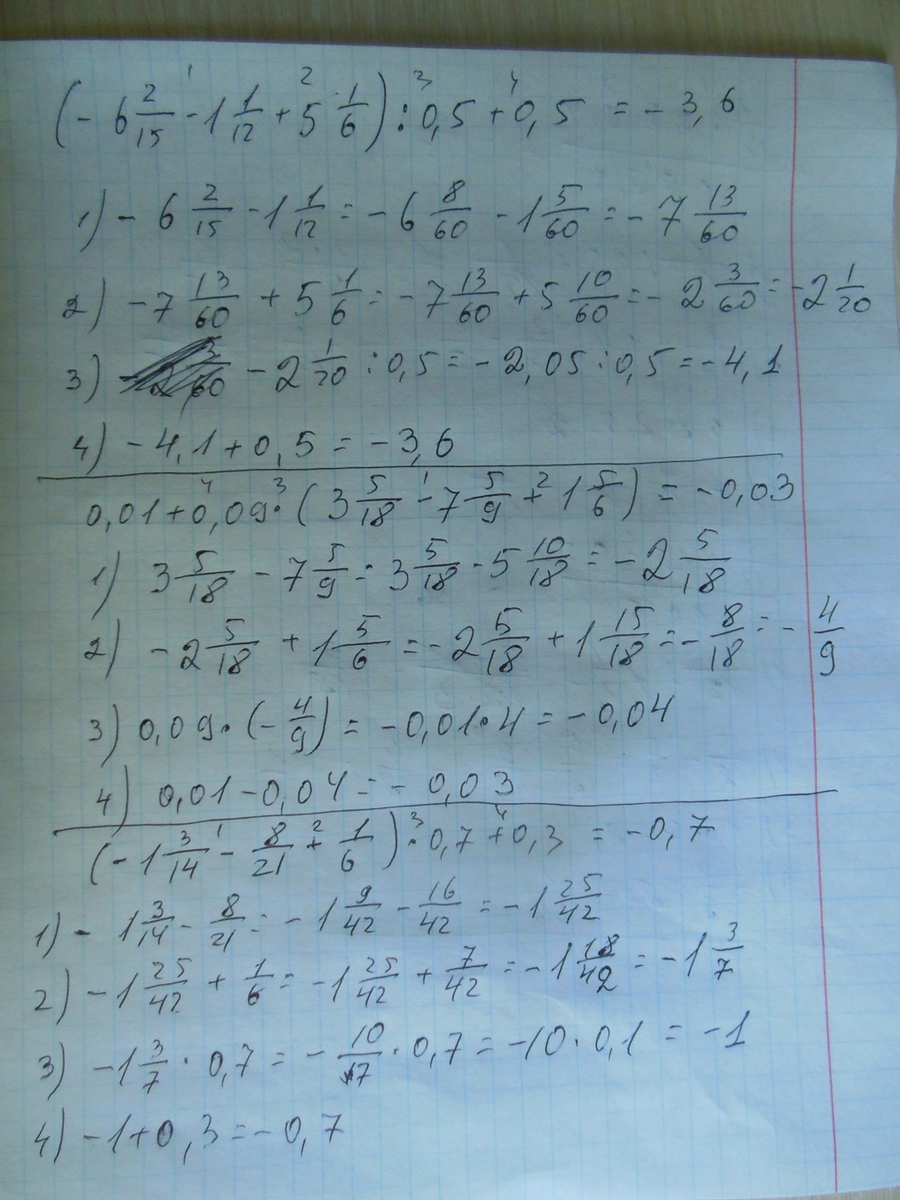 (- 6 2/15 - 1 1/12 + 5 1/6) : 0,5 + 0,5 = - 3,6
1) - 6 2/15 - 1 1/12 = - 6 8/60 - 1 5/60 = - 7 13/60
2) - 7 13/60 + 5 1/6 = - 7 13/60 + 5 10/60 = - 2 3/60 = - 2 1/20
3) - 2 1/20 : 0,5 = - 2,05 : 0,5 = - 4,1
4) - 4,1 + 0,5 = - 3,6
0,01 + 0,09 · (3 5/18 - 7 5/9 + 1 5/6) = - 0,03
1) 3 5/18 - 7 5/9 = 3 5/18 - 5 10/18 = - 2 5/18
2) - 2 5/18 + 1 5/6 = - 2 5/18 + 1 15/18 = - 8/18 = - 4/9
3) 0,09 · (- 4/9) = - 0,01 · 4 = - 0,04
4) 0,01 - 0,04 = - 0,03
(- 1 3/14 - 8/21 + 1/6) · 0,7 + 0,3 = - 0,7
1) - 1 3/14 - 8/21 = - 1 9/42 - 16/42 = - 1 25/42
2) - 1 25/42 + 1/6 = - 1 25/42 + 7/42 = - 1 18/42 = - 1 3/7
3) - 1 3/7 · 0,7 = - 10/7 · 0,7 = - 10 · 0,1 = - 1
4) - 1 + 0,3 = - 0,7